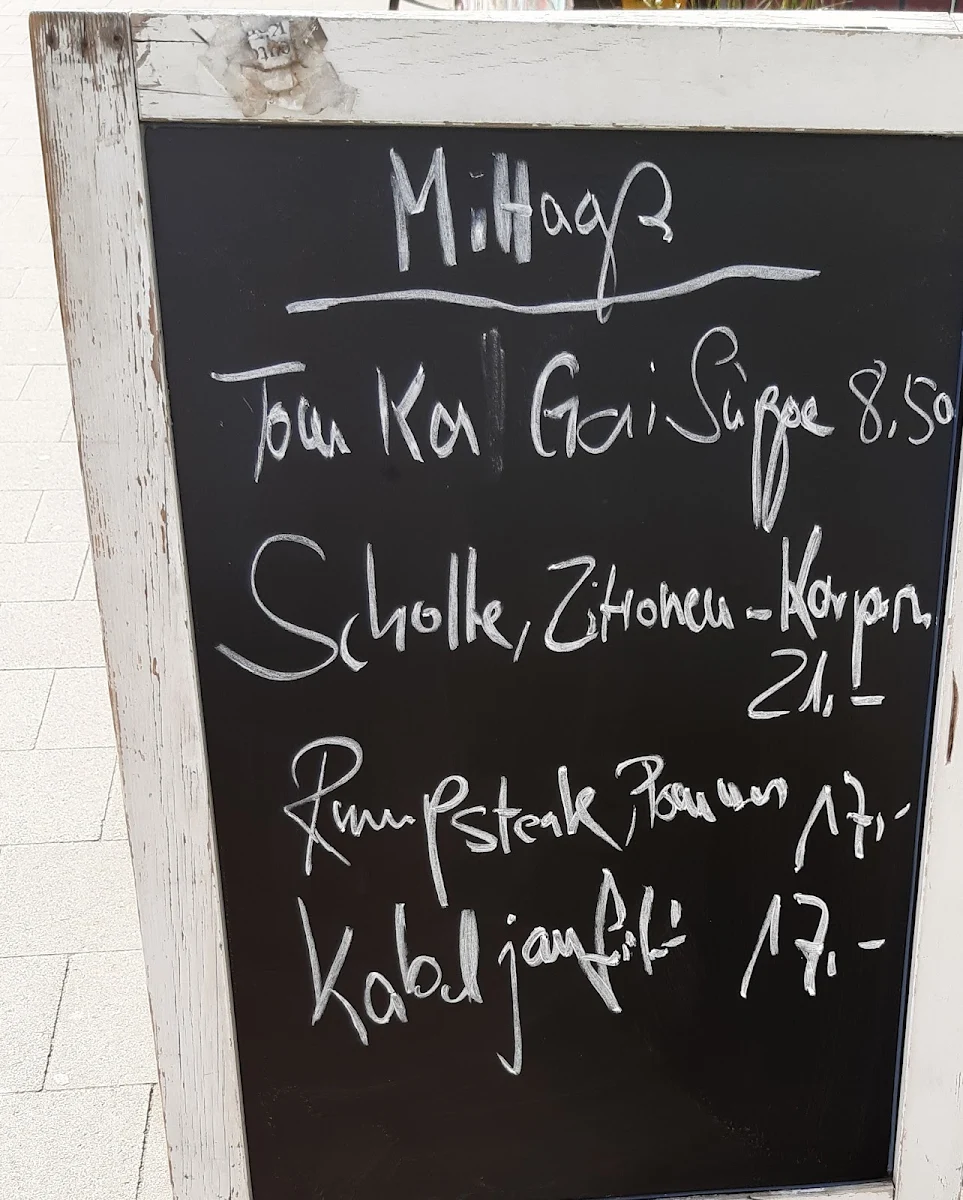 Mittags
Tom Ka Gai Suppe 8,50
Scholle, Zitronen-Kapern
21,-
Rumpsteak, Pommes 17,-
Kabeljaufilet 17,-